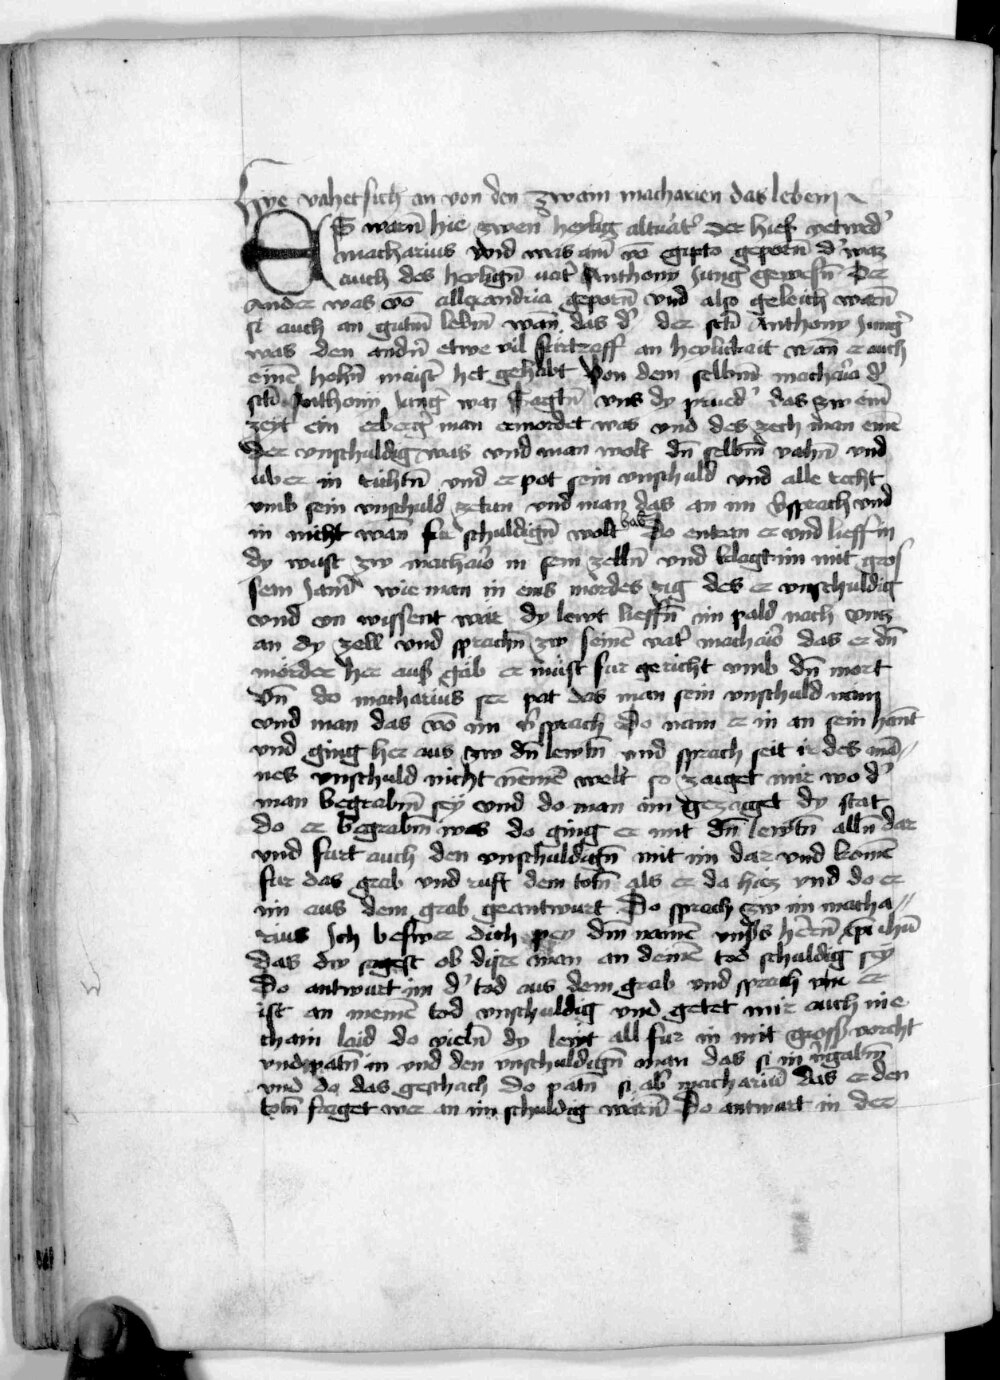 Hye vahet sich an von den zwain macharien das leben
ES warn̄ hie zwen heylig altvät͛ Der hieß yetwed͛
macharius vnd was ain͛ vō egipto geporn̄ d͛ waz
auch des heylign̄ vat͛ Anthony Jung͛ gewesn̄ Der
Ander was vō allexandria geporn̄ vnd also geleich warn̄
si auch an gutm̄ lebm̄ wan̄ das d͛ der sctī Anthony Jung͛
was den andn̄ etwe vil fürtreff an heylickeit wan̄ er auch
einē hohn̄ maist͛ het gehabt Von dem selbm̄ machario d͛
sctī Anthony Jung͛ waz sagtn̄ vns dy prued͛ das zw ein͛
zeyt ein erberg͛ man ermordet was vnd des zech man einē
der vnschuldig was vnd man wolt dn̄ selbm̄ vahn̄ vnd
uber in richtn̄ vnd er pot sein vnschuld vnd alle recht
vmb sein vnschuld zetun vnd man das an im v͛sprach vnd
in nicht wan̄ für schuldign̄ wolt habn̄ Do entran er vnd lieff in
dy wüst zw machario in sein zelln̄ vnd klagt im mit gros
sem Jam͛ wie man in eins mordes zig des er vnschuldig
vnd vn wissent wär dy lewt lieffn̄ im pald nach vntz
an dy zell vnd sprachn̄ zw seinē vat͛ machario das er dn̄
mörder her auß gäb er müst für gericht vmb dn̄ mort
Vn̄ do macharius ser pat das man sein vnschuld näm
vnd man das vō im v͛sprach Do nam er in an sein hant
vnd ging her aus zw dn̄ lewtn̄ vnd sprach seit ir des mā⸗
nes vnschuld nicht nemē welt so zaiget mir wo d͛
man begrabm̄ sey vnd do man im gezaiget dy stat
do er begrabm̄ was do ging er mit dn̄ lewtn̄ alln̄ dar
vnd furt auch den vnschuldign̄ mit im dar vnd komē
für das grab vnd ruft dem totn̄ als er da hiez vnd do er
im aus dem grab geantwurt Do sprach zw im macha⸗
rius Ich beswer dich pey dm̄ namē vnsers herrn̄ xp̄i ihū
das dw sagest ob diser man an deinē tod schuldig sey
Do antwurt im d͛ tod aus dem grab vnd sprach er
ist an meinē tod vnschuldig vnd getet mir auch nie
chain laid do vieln̄ dy lewt all fur in mit grosß vorcht
vnd patn̄ in vnd den vnschuldign̄ man das si in v͛gabm̄
vnd do das geschach do patn̄ si ab͛ macharium̄ das er den
totn̄ fraget wer an im schuldig wärn̄ Do antwurt in der